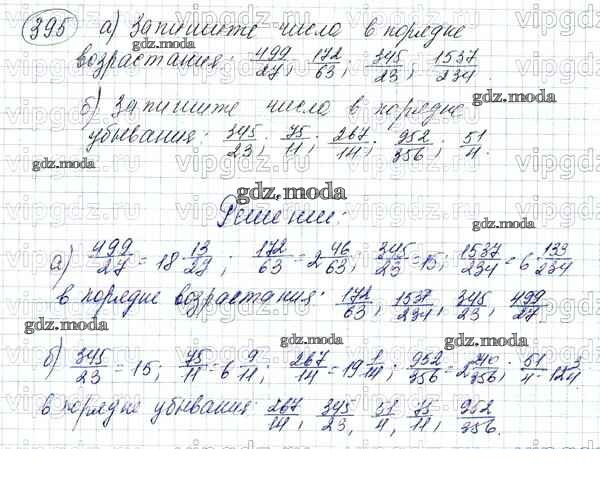 395 а) Запишите числа в порядке
возрастания: 499/27; 172/63; 345/23; 1537/234.
б) Запишите числа в порядке
убывания: 345/23; 75/11; 267/14; 952/356; 51/4.
Решение:
а) 499/27 = 18 13/27; 172/63 = 2 46/63; 345/23 = 15; 1537/234 = 6 133/234
в порядке возрастания: 172/63, 1537/234, 345/23, 499/27.
б) 345/23 = 15; 75/11 = 6 9/11; 267/14 = 19 1/14; 952/356 = 2 240/356; 51/4 = 12 3/4
в порядке убывания: 267/14, 345/23, 51/4, 75/11, 952/356.